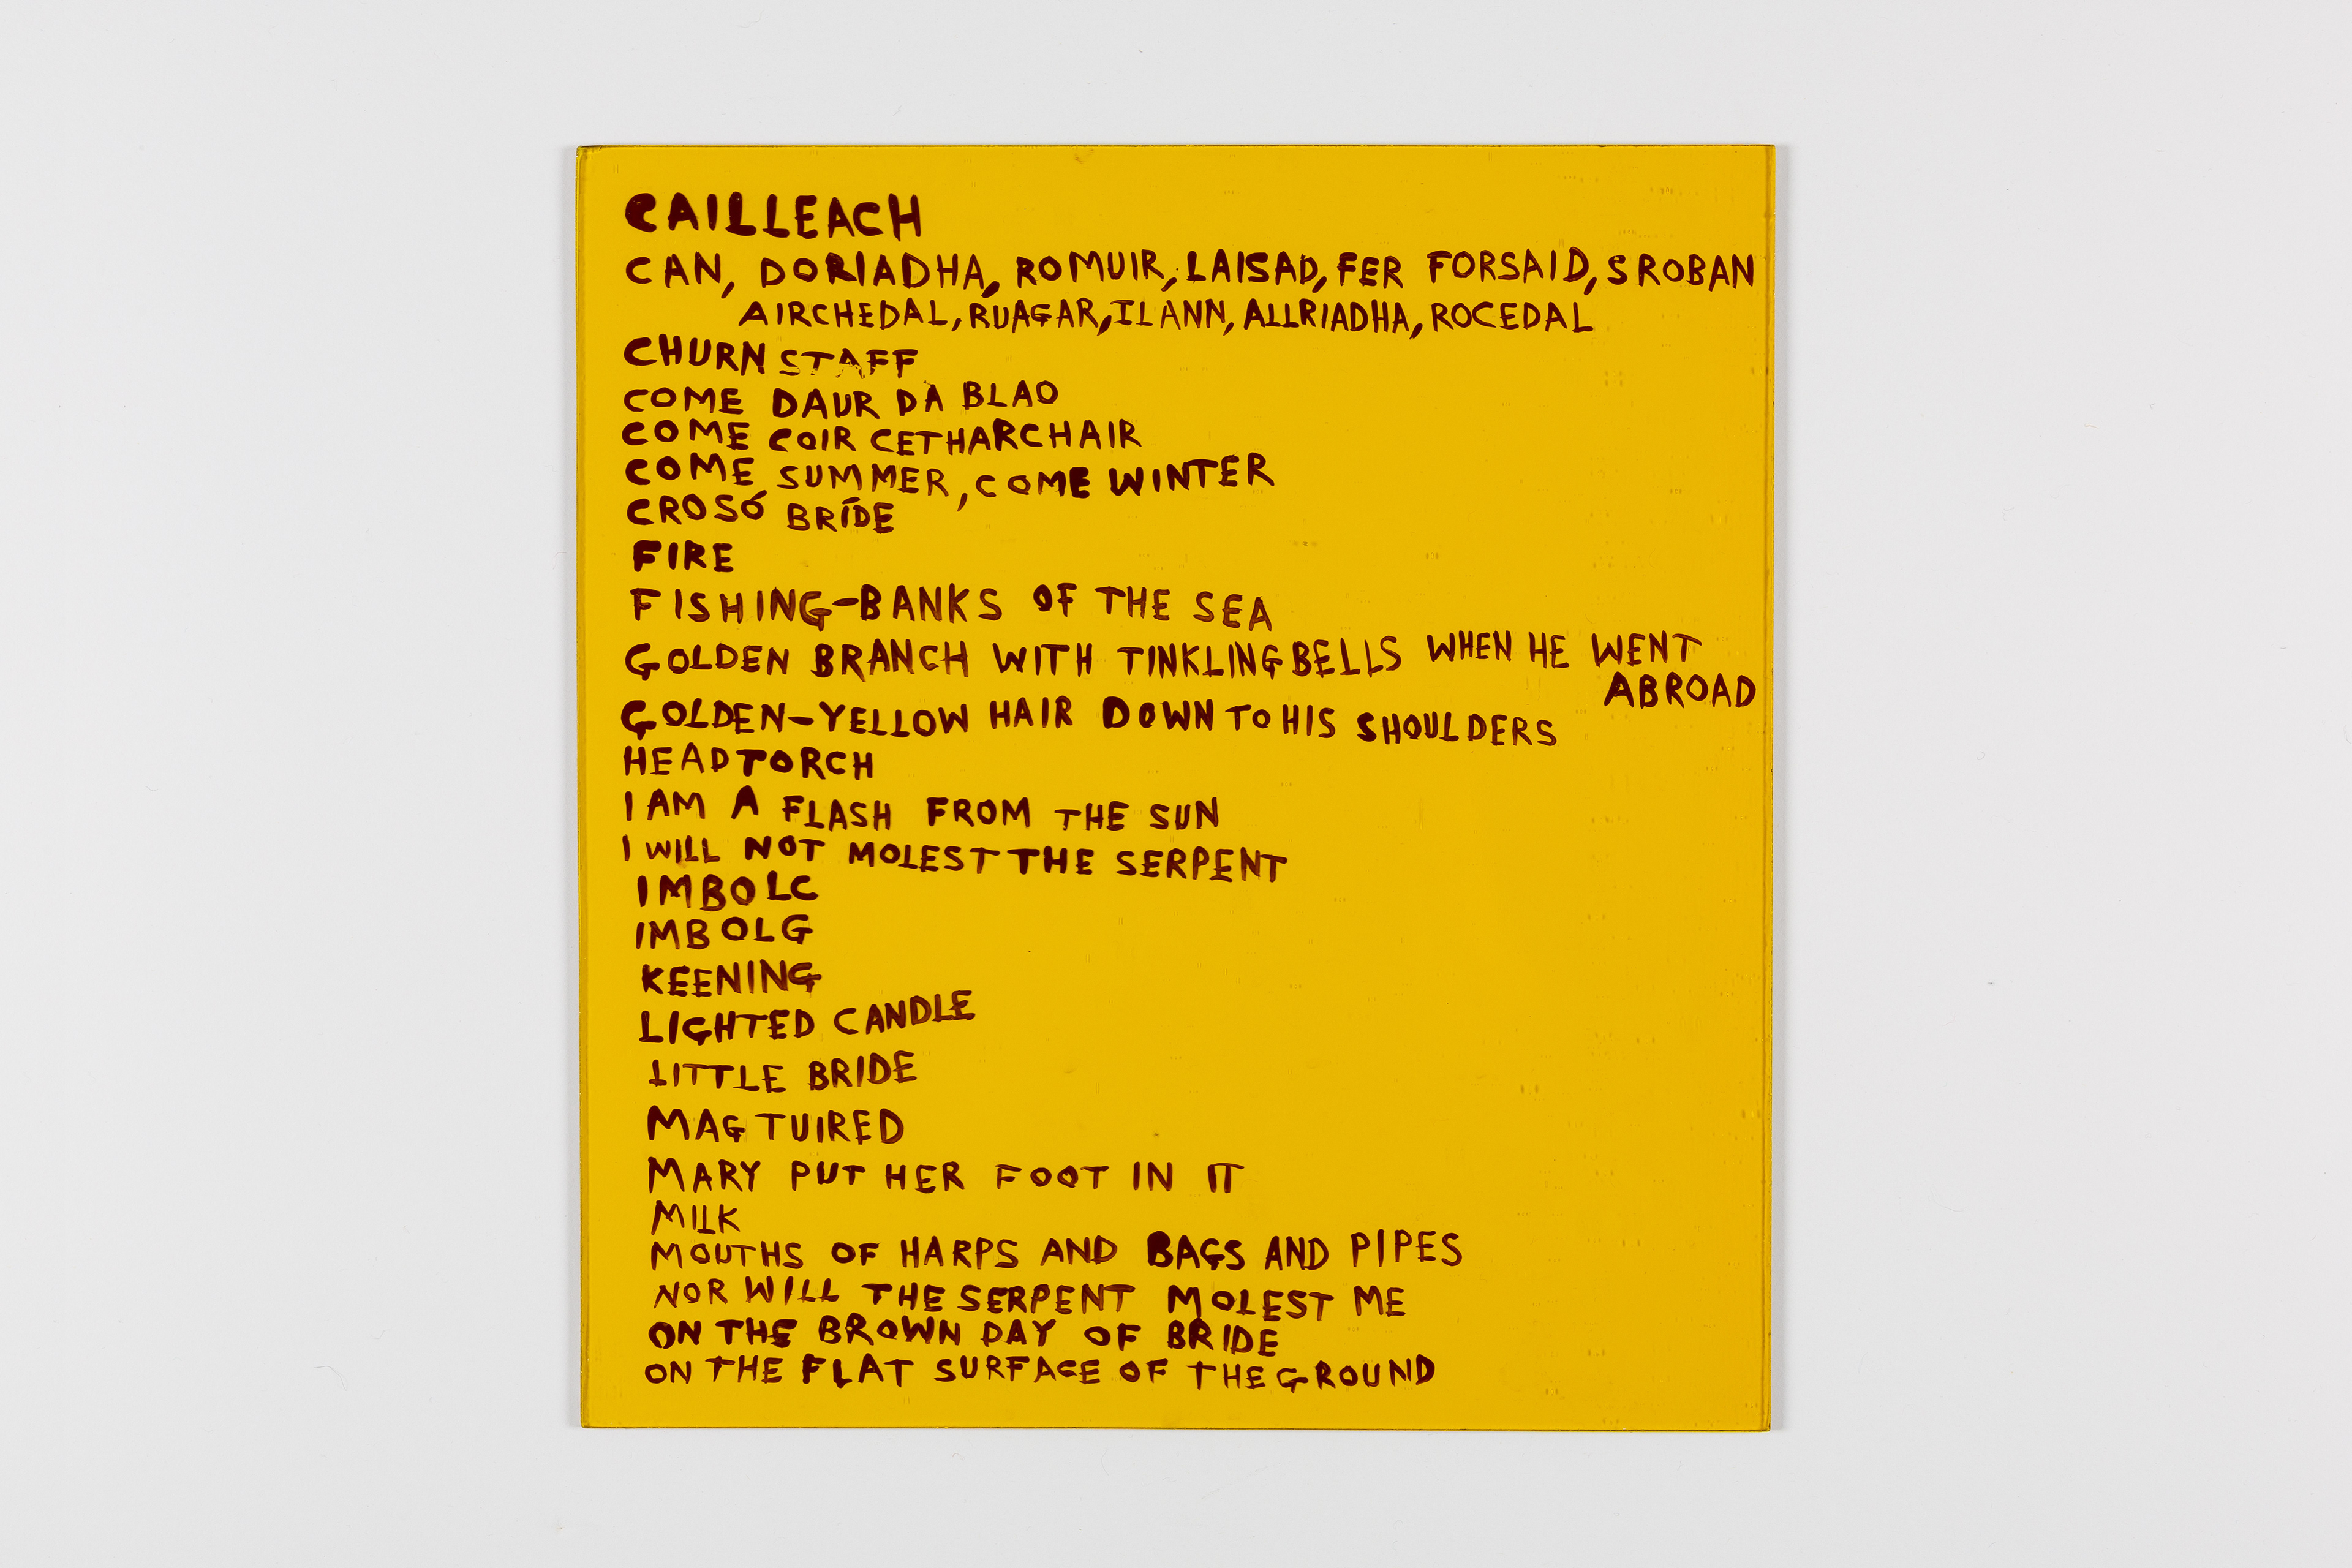 CAILLEACH
CAN, DORIADHA, ROMUIR, LAISAD, FER FORSAID, SROBAN
AIRCHEDAL, RUAGAR, ILANN, ALLRIADHA, ROCEDAL
CHURN STAFF
COME DAUR DÁ BLAO
COME COIR CETHARCHAIR
COME SUMMER, COME WINTER
CROSÓ BRÍDE
FIRE
FISHING-BANKS OF THE SEA
GOLDEN BRANCH WITH TINKLING BELLS WHEN HE WENT
ABROAD
GOLDEN-YELLOW HAIR DOWN TO HIS SHOULDERS
HEADTORCH
I AM A FLASH FROM THE SUN
I WILL NOT MOLEST THE SERPENT
IMBOLC
IMBOLG
KEENING
LIGHTED CANDLE
LITTLE BRIDE
MAG TUIRED
MARY PUT HER FOOT IN IT
MILK
MOUTHS OF HARPS AND BAGS AND PIPES
NOR WILL THE SERPENT MOLEST ME
ON THE BROWN DAY OF BRIDE
ON THE FLAT SURFACE OF THE GROUND